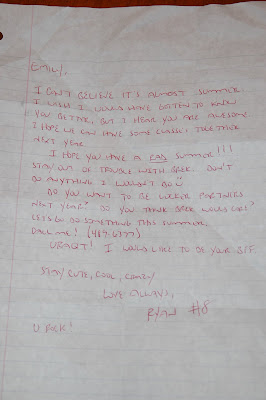 EMILY,
I CAN'T BELIEVE IT'S ALMOST SUMMER.
I WISH I WOULD HAVE GOTTEN TO KNOW
YOU BETTER, BUT I HEAR YOU ARE AWESOME.
I HOPE WE CAN HAVE SOME CLASSES TOGETHER
NEXT YEAR.
I HOPE YOU HAVE A RAD SUMMER!!!
STAY OUT OF TROUBLE WITH GREK. DON'T
DO ANYTHING I WOULDN'T DO
DO YOU WANT TO BE LOCKER PARTNERS
NEXT YEAR? DO YOU THINK GREK WOULD CARE?
LETS DO SOMETHING THIS SUMMER.
CALL ME! (489-6377)
URAQT! I WOULD LIKE TO BE YOUR BFF.
STAY CUTE, COOL, CRAZY
LOVE ALWAYS,
RYAN #8
U ROCK!